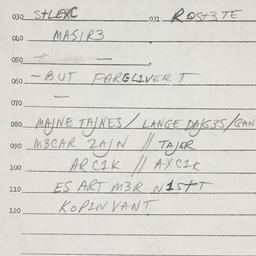 030 STLEXC 031 ROST3TE
040 MASIR3
050
060 - BUT FARGLIVERT
070 -
080 MAJNE TAJNES / LANGE DAJG3S/GAN
090 M3CAR ZAJN // TAJER
100 ARC1K // AXC1K
110 ES ART M3R N1STT
120 KOPINVANT